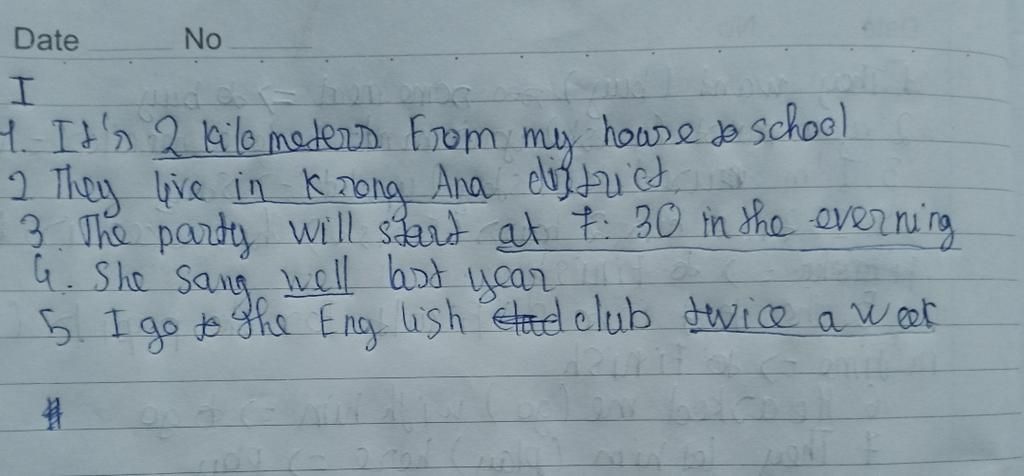 Date No
I
1. It's 2 kilometers From my house to school
2 They live in Krong Ana district
3. The party will start at 7:30 in the everning
4. She sang well last year
5. I go to the English club twice a week